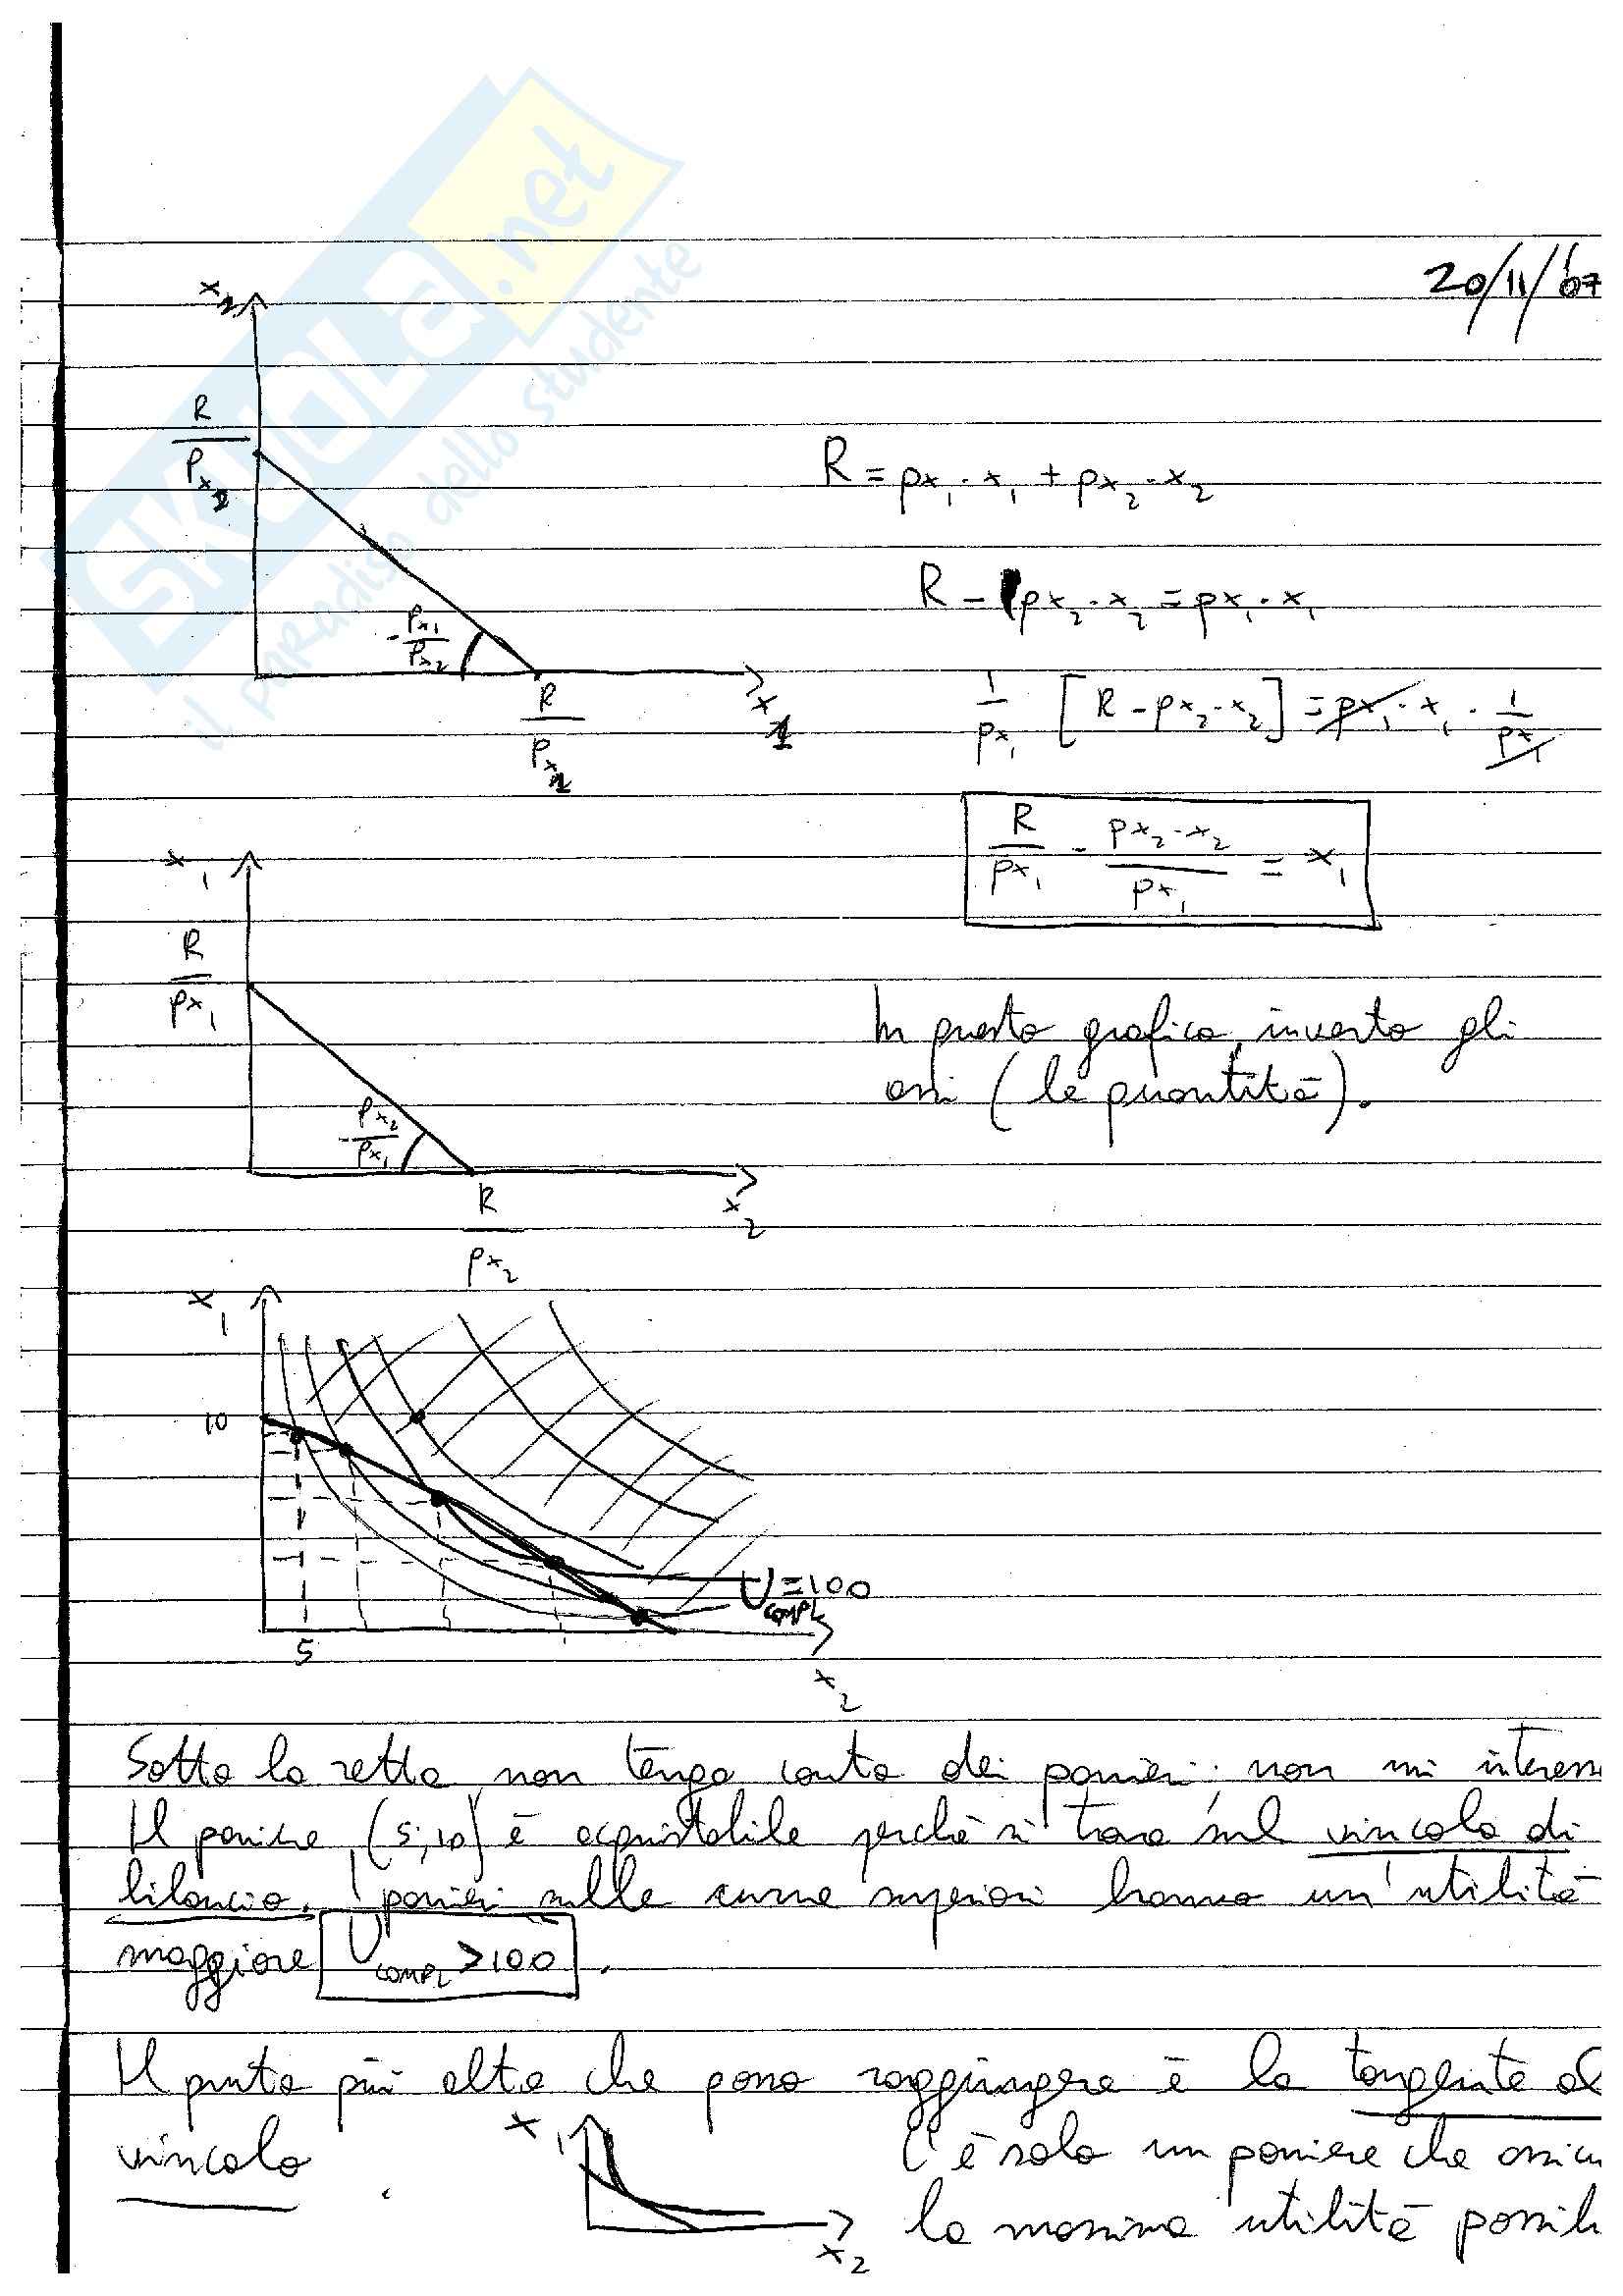 SKUOLA.net
il paradiso dello studente
20/11/07
x2
R/Px2
-Px1/Px2
R/Px1
x1
R = px1 · x1 + px2 · x2
R - px2 · x2 = px1 · x1
1/px1 [R - px2 · x2] = px1 · x1 · 1/px1
R/px1 - px2 · x2/px1 = x1
x1
R/px1
-Px2/Px1
R/px2
x2
In questo grafico, inverto gli
assi (le quantità).
x1
10
5
U compl = 100
x2
Sotto la retta non tengo conto dei panieri; non mi interess
Il paniere (5;10) è acquistabile perché si trova sul vincolo di
bilancio. I panieri sulle curve superiori hanno un'utilità
maggiore U compl > 100.
Il punto più alto che posso raggiungere è la tangente al
vincolo.
x1
x2
C'è solo un paniere che assicu
la massima utilità possib